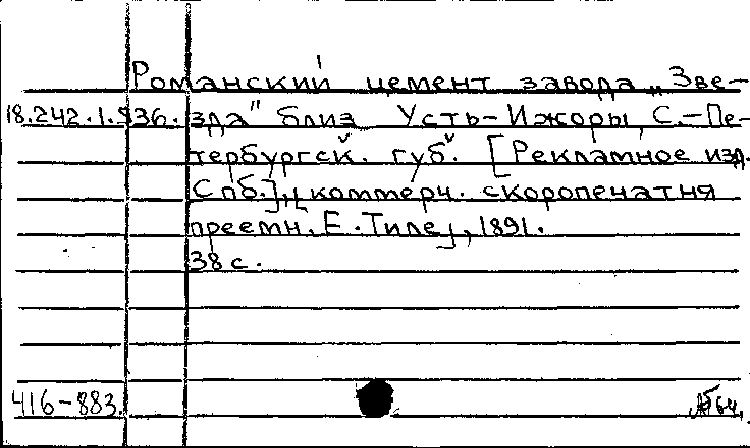 Романский цемент завода „Зве-
18.242.1.536. зда" близ Усть-Ижоры, С.-Пе-
тербургск. губ. [Рекламное изд.
Спб.], [коммерч. скоропечатня
преемн. Е. Тиле], 1891.
38 с.
416-883.